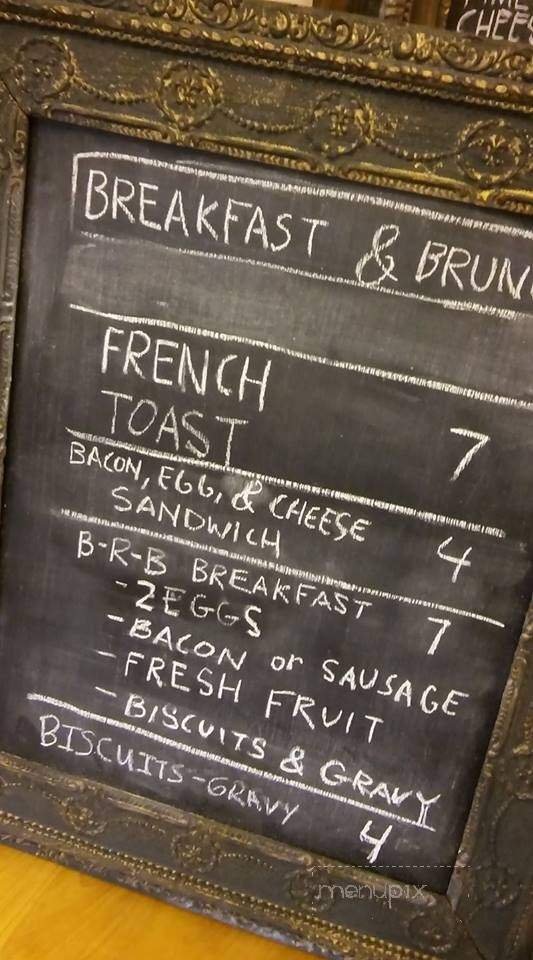 CHEES
BREAKFAST & BRUN
FRENCH
TOAST 7
BACON, EGG, & CHEESE
SANDWICH 4
B-R-B BREAKFAST 7
-2 EGGS
-BACON or SAUSAGE
-FRESH FRUIT
-BISCUITS & GRAVY
BISCUITS-GRAVY 4
menupix